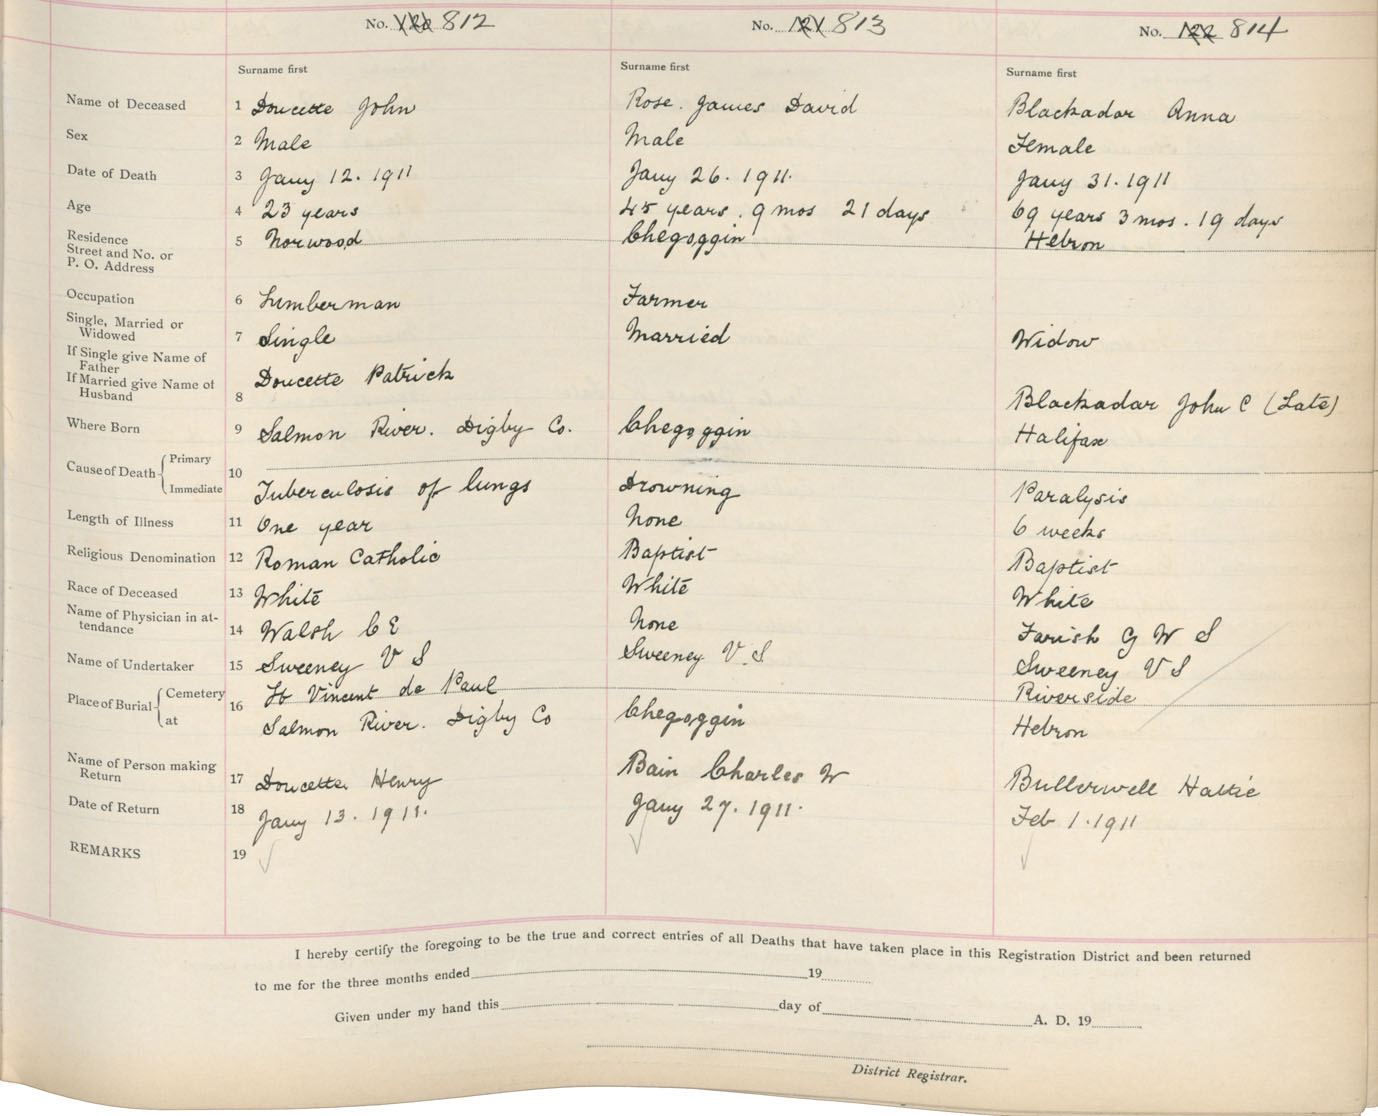 No. 120 812
No. 121 813
No. 122 814
Surname first
Surname first
Surname first
Name of Deceased 1 Doucette John
Rose. James David
Blackadar Anna
Sex 2 Male
Male
Female
Date of Death 3 Jany 12. 1911
Jany 26. 1911.
Jany 31. 1911
Age 4 23 years
45 years. 9 mos 21 days
69 years 3 mos. 19 days
Residence
Street and No. or
P. O. Address
5 Norwood
Chegoggin
Hebron
Occupation 6 Lumberman
Farmer
Single, Married or
Widowed
7 Single
Married
Widow
If Single give Name of
Father
If Married give Name of
Husband
8
Doucette Patrick
Blackadar John C (Late)
Where Born 9 Salmon River. Digby Co.
Chegoggin
Halifax
Cause of Death Primary
Immediate
10
Tuberculosis of lungs
Drowning
Paralysis
Length of Illness 11 One year
None
6 weeks
Religious Denomination 12 Roman Catholic
Baptist
Baptist
Race of Deceased 13 White
White
White
Name of Physician in at-
tendance
14 Walsh C E
None
Farish G W S
Name of Undertaker 15 Sweeney V S
Sweeney V. S
Sweeney V S
Place of Burial Cemetery
at
16
St Vincent de Paul
Salmon River. Digby Co
Chegoggin
Riverside
Hebron
Name of Person making
Return
17 Doucette Henry
Bain Charles W
Bullerwell Hattie
Date of Return 18 Jany 13. 1911.
Jany 27. 1911.
Feb 1. 1911
REMARKS 19
I hereby certify the foregoing to be the true and correct entries of all Deaths that have taken place in this Registration District and been returned
to me for the three months ended 19
Given under my hand this day of A. D. 19
District Registrar.